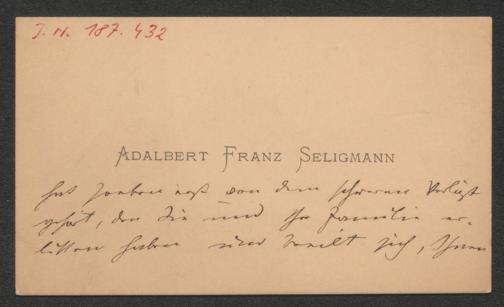 J. N. 187.432
ADALBERT FRANZ SELIGMANN
hat soeben erst von dem schweren Verlust
gehört, den Sie und Ihre Familie er-
litten haben und beeilt sich, Ihnen